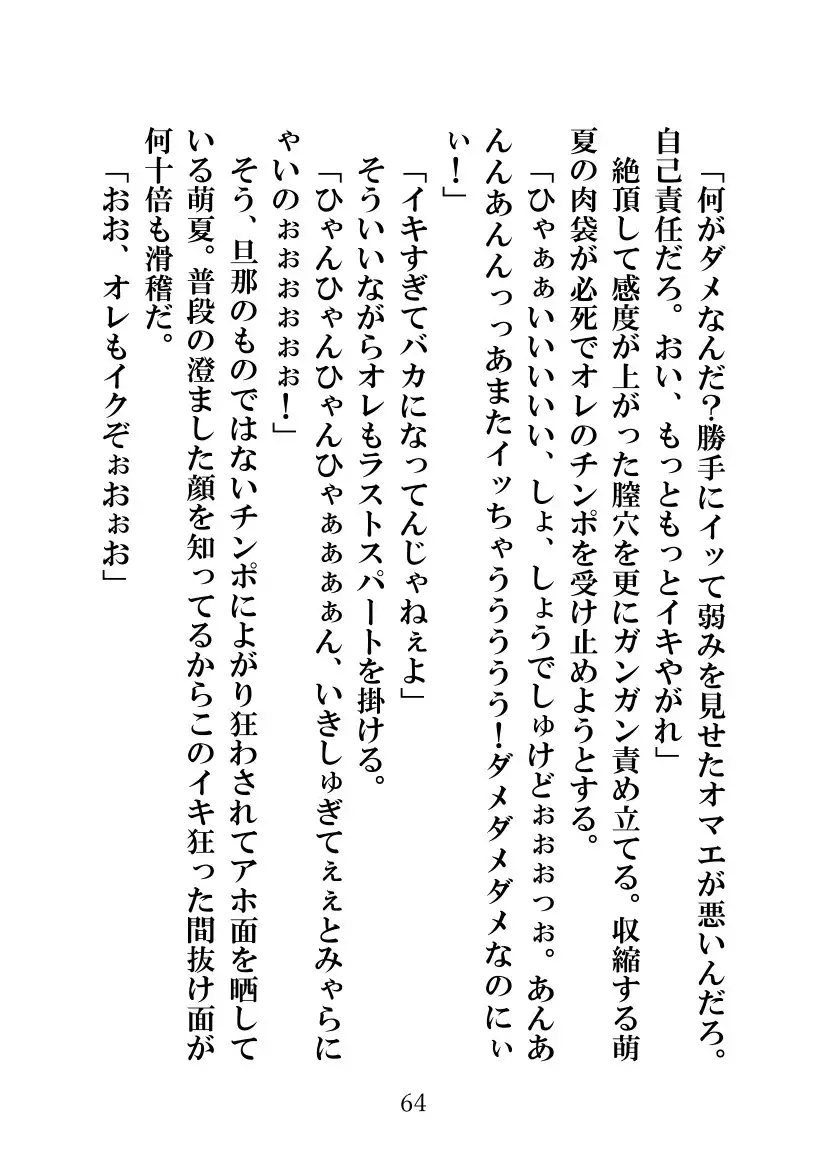 「何がダメなんだ？勝手にイッて弱みを見せたオマエが悪いんだろ。
自己責任だろ。おい、もっともっとイキやがれ」
絶頂して感度が上がった膣穴を更にガンガン責め立てる。収縮する萌
夏の肉袋が必死でオレのチンポを受け止めようとする。
「ひゃぁぁいいいいい、しょ、しょうでしゅけどぉぉぉつぉ。あんあ
んんあんんっっあまたイッちゃうううう！ダメダメダメなのにぃ
ぃ！」
「イキすぎてバカになってんじゃねぇよ」
そういいながらオレもラストスパートを掛ける。
「ひゃんひゃんひゃんひゃぁぁぁぁん、いきしゅぎてぇぇとみゃらに
ゃいのぉぉぉぉぉぉ！」
そう、旦那のものではないチンポによがり狂わされてアホ面を晒して
いる萌夏。普段の澄ました顔を知ってるからこのイキ狂った間抜け面が
何十倍も滑稽だ。
「おお、オレもイクぞぉおぉお」
64